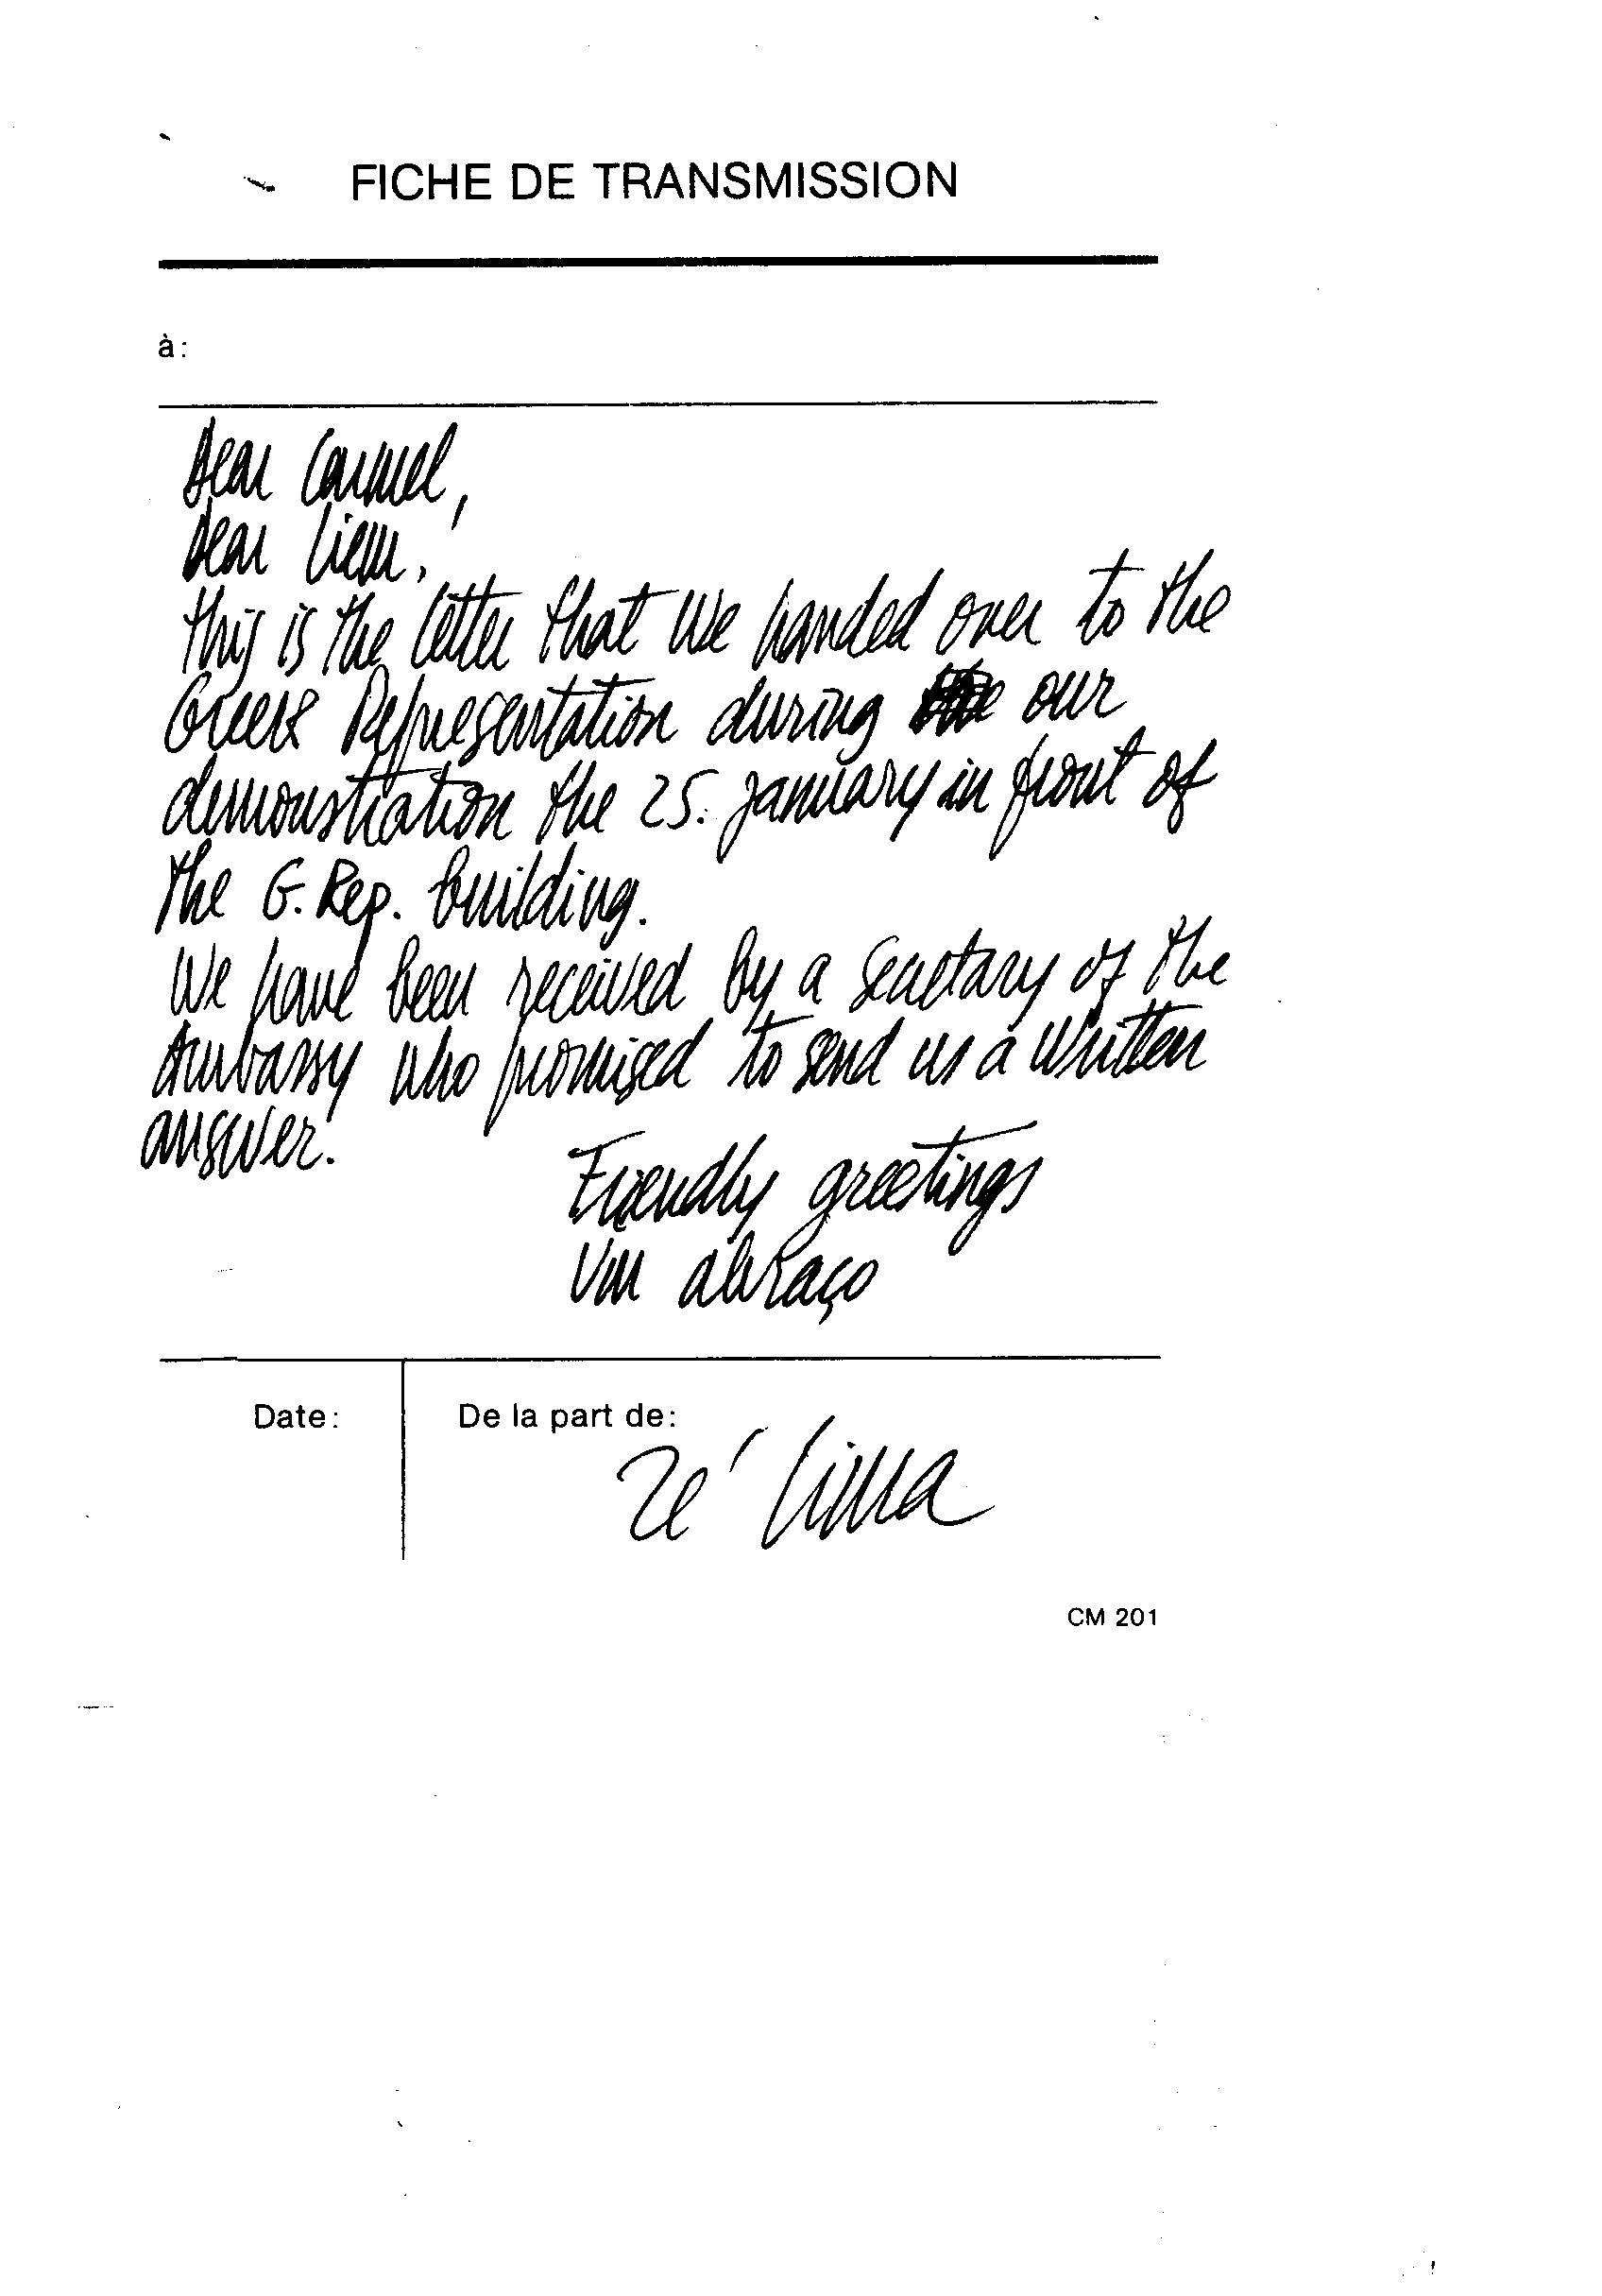 FICHE DE TRANSMISSION
à:
Dear Carmel,
Dear Liem,
this is the letter that we handed over to the
Greek Representation during the our
demonstration the 25. january in front of
the G. Rep. building.
We have been received by a secretary of the
Ambassy who promised to send us a written
answer.
Friendly greetings
Um abraço
Date:
De la part de:
Zé Lima
CM 201